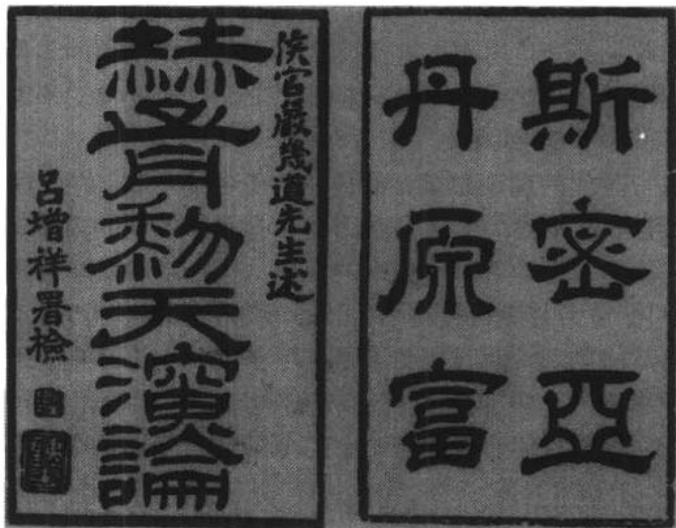 斯密亞
丹原富
侯官嚴幾道先生述
赫胥黎天演論
呂增祥署檢